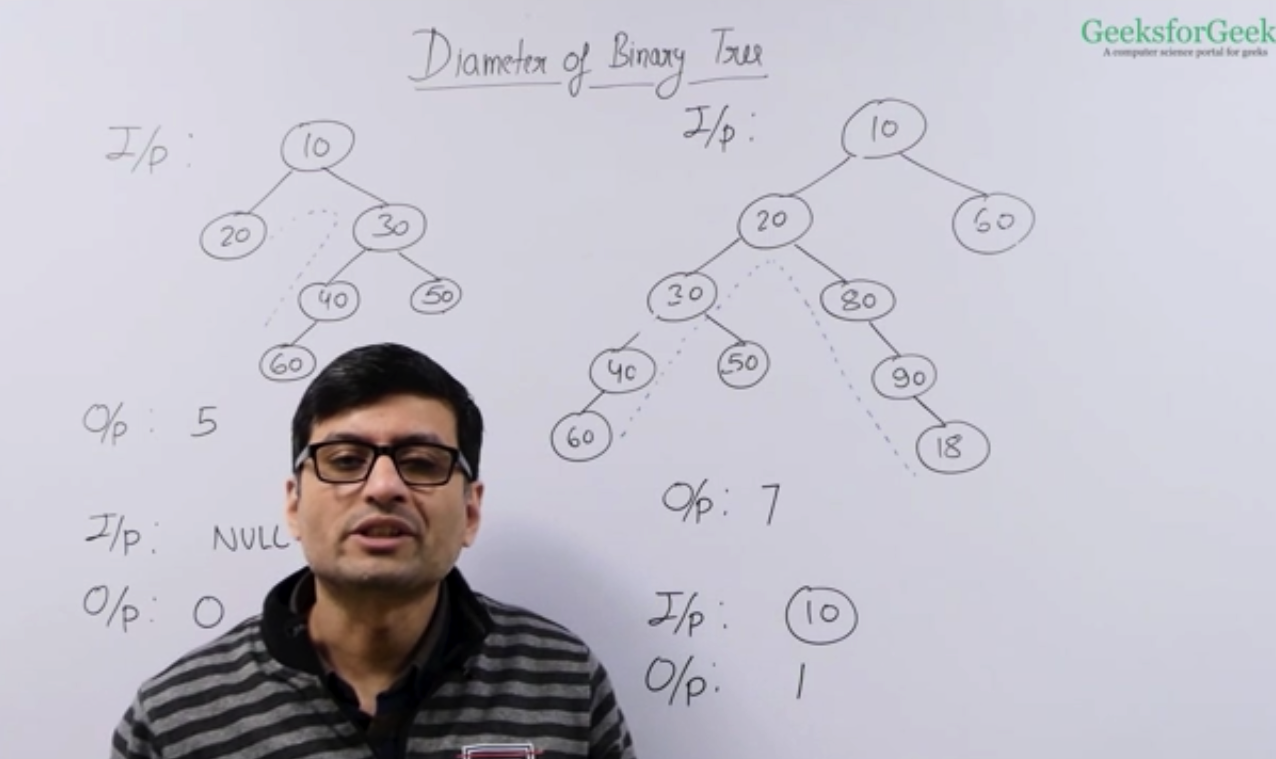 GeeksforGeek
A computer science portal for geeks
Diameter of Binary Tree
I/p :
10
20
30
40
50
60
O/p : 5
I/p : NULL
O/p : 0
I/p :
10
20
60
30
80
40
50
90
60
18
O/p : 7
I/p : 10
O/p : 1